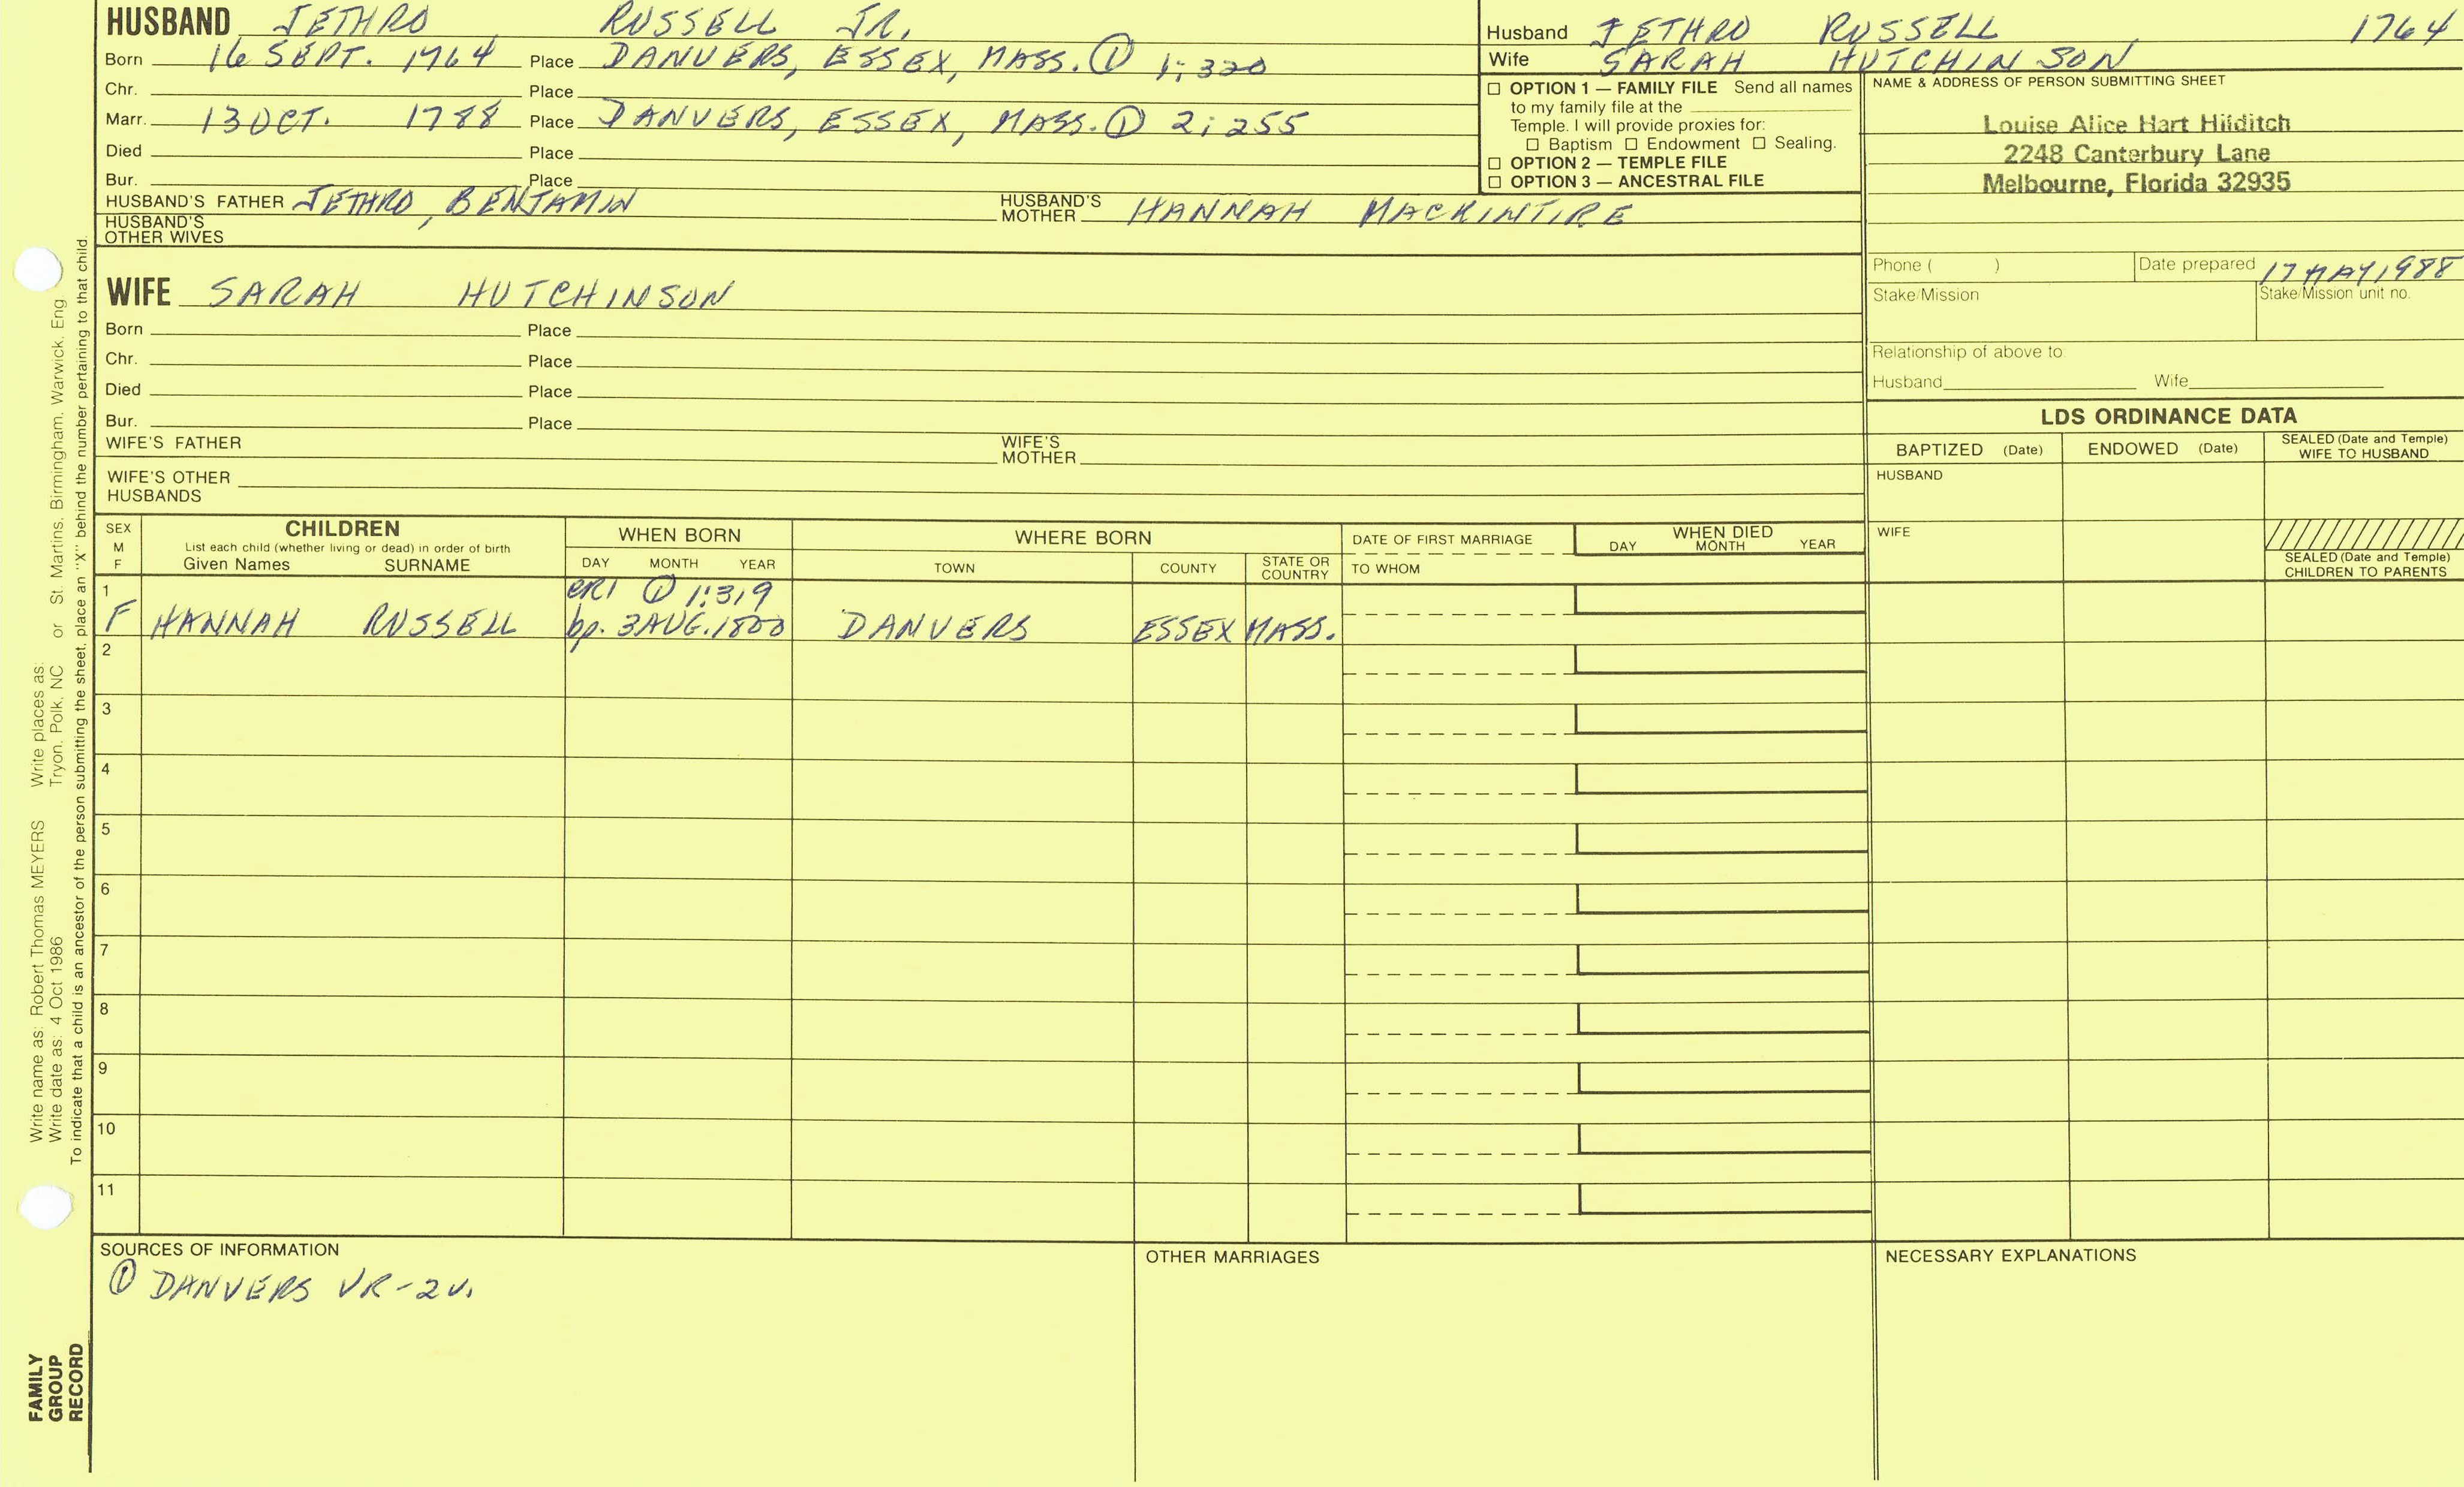 HUSBAND JETHRO RUSSELL JR.
Born 16 SEPT. 1764 Place DANVERS, ESSEX, MASS. ① 1:320
Chr. Place
Marr. 13 OCT. 1788 Place DANVERS, ESSEX, MASS. ① 2:255
Died Place
Bur. Place
HUSBAND'S FATHER JETHRO, BENJAMIN HUSBAND'S MOTHER HANNAH MACKINTIRE
HUSBAND'S OTHER WIVES
Husband JETHRO RUSSELL 1764
Wife SARAH HUTCHINSON
☐ OPTION 1 — FAMILY FILE Send all names
to my family file at the
Temple. I will provide proxies for:
☐ Baptism ☐ Endowment ☐ Sealing.
☐ OPTION 2 — TEMPLE FILE
☐ OPTION 3 — ANCESTRAL FILE
NAME & ADDRESS OF PERSON SUBMITTING SHEET
Louise Alice Hart Hilditch
2248 Canterbury Lane
Melbourne, Florida 32935
Phone ( ) Date prepared 17 MAY 1988
Stake/Mission Stake/Mission unit no.
Relationship of above to:
Husband Wife
WIFE SARAH HUTCHINSON
Born Place
Chr. Place
Died Place
Bur. Place
WIFE'S FATHER WIFE'S MOTHER
WIFE'S OTHER HUSBANDS
LDS ORDINANCE DATA
BAPTIZED (Date) ENDOWED (Date) SEALED (Date and Temple) WIFE TO HUSBAND
HUSBAND
WIFE
SEALED (Date and Temple) CHILDREN TO PARENTS
SEX M F
CHILDREN
List each child (whether living or dead) in order of birth
Given Names SURNAME
WHEN BORN
DAY MONTH YEAR
WHERE BORN
TOWN COUNTY STATE OR COUNTRY
DATE OF FIRST MARRIAGE
TO WHOM
WHEN DIED
DAY MONTH YEAR
1 CR1 ① 1:319
F HANNAH RUSSELL bp. 3 AUG. 1800 DANVERS ESSEX MASS.
2
3
4
5
6
7
8
9
10
11
SOURCES OF INFORMATION
① DANVERS VR-2v.
OTHER MARRIAGES
NECESSARY EXPLANATIONS
Write name as: Robert Thomas MEYERS Write places as: St. Martins, Birmingham, Warwick, Eng
Write date as: 4 Oct 1986 Tryon, Polk, NC or
To indicate that a child is an ancestor of the person submitting the sheet, place an "X" behind the number pertaining to that child.
FAMILY
GROUP
RECORD